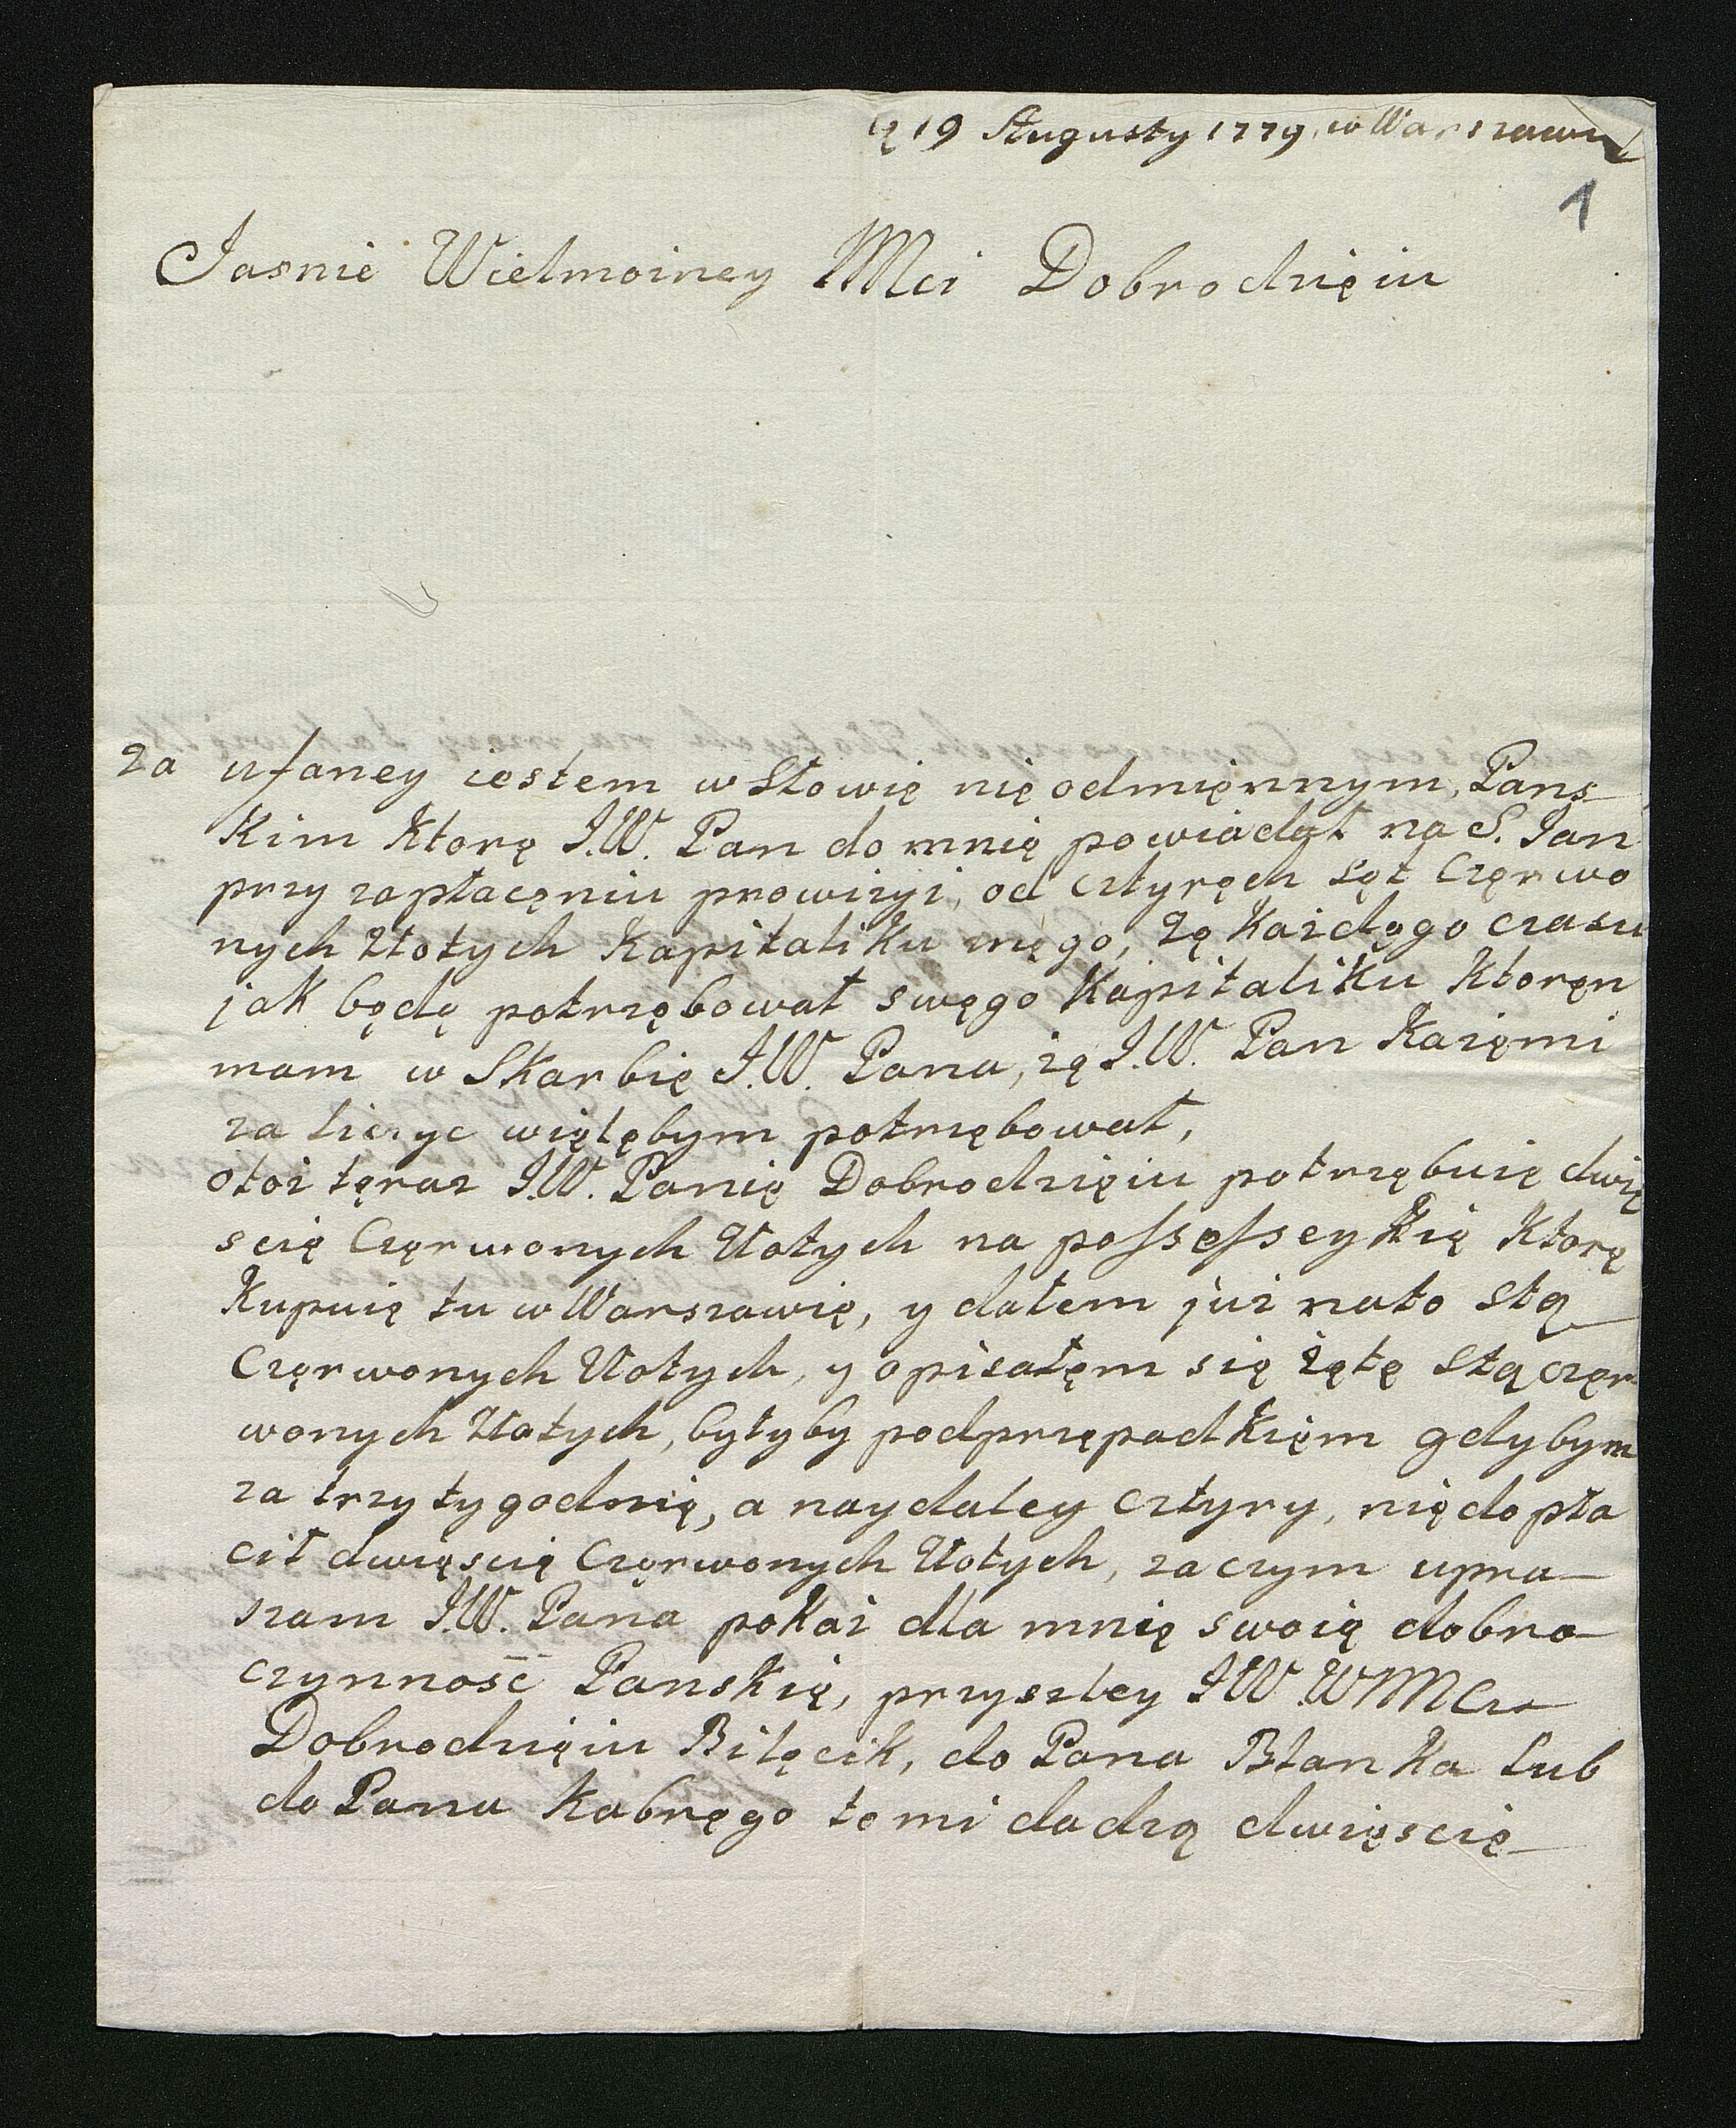 19 Augusty 1779, w Warszawie
1
Jasnie Wielmozney Mci Dobrodzięiu
za ufaney iestem w Słowię nię odmięnnym, Pans
kim ktorę J.W. Pan do mnię powiadał na S. Jan
przy zapłacęniu prowizyi, od cztyręch sęt Częrwo
nych Złotych Kapitaliku męgo, zę każdęgo czasu
jak będę potrzębował swęgo Kapitaliku ktoręn
mam w Skarbię J.W. Pana, żę J.W. Pan Każęmi
za liczyc więlębym potrzębował,
otoż tęraz J.W. Panię Dobrodzięiu potrzębuię dwię
scię Częrwonych Złotych na possesseykię ktorę
Kupuię tu w Warszawię, y dałem już nato stą
Częrwonych Złotych, y opisałęm się żętę stą częr
wonych Złotych, byłyby podprzępadkięm gdybym
za trzy tygodnię, a naydaley cztyry, nię do pła
cił dwięscię Częrwonych Złotych, zaczym upra—
szam J.W. Pana pokaż dla mnię swoię dobro—
czynność Panskię, przyszley JW WM
Dobrodzięiu Bilęcik, do Pana Blanka lub
do Pana Kabręgo to mi dadzą dwięscię—